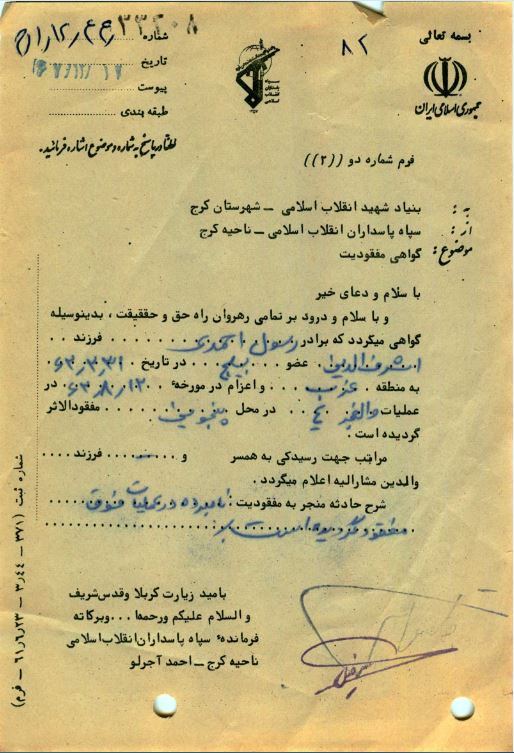 بسمه تعالی
جمهوری اسلامی ایران
۸۲
سپاه پاسداران انقلاب اسلامی
شماره ۳۳۲۰۸
تاریخ ۶۷/۱۲/۱۷
پیوست
طبقه بندی
لطفا در پاسخ به شماره و موضوع اشاره فرمائید.
فرم شماره دو ((۲))
به : بنیاد شهید انقلاب اسلامی ــ شهرستان کرج
از : سپاه پاسداران انقلاب اسلامی ــ ناحیه کرج
موضوع : گواهی مفقودیت
با سلام و دعای خیر
و با سلام و درود بر تمامی رهروان راه حق و حققیقت ، بدینوسیله
گواهی میگردد که برادر رسول احمدی فرزند
اشرف الدین عضو بسیج در تاریخ ۶۳/۳/۳۱
به منطقه غرب و اعزام در مورخهٔ ۶۳/۸/۱۲ در
عملیات والفجر ۴ در محل پنجوین مفقودالاثر
گردیده است .
مراتب جهت رسیدکی به همسر و فرزند
والدین مشارالیه اعلام میگردد .
شرح حادثه منجر به مفقودیت : نامبرده در عملیات فوق
مفقود گردیده است
بامید زیارت کربلا وقدس شریف
و السلام علیکم ورحمها ... وبرکاته
فرماندهٔ سپاه پاسداران انقلاب اسلامی
ناحیه کرج ــ احمد آجرلو
شماره ثبت (۳۷۱ ــ ۳/۴۴ ــ ۶۱/۶/۲۳ ــ فرم)